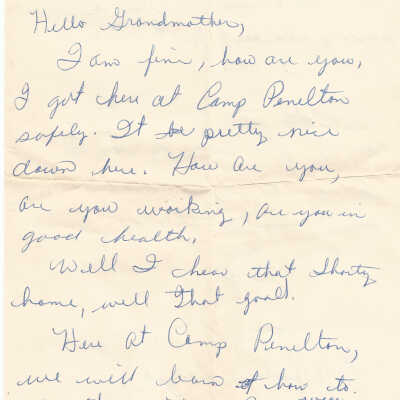 Hello Grandmother,
I am fine, how are you,
I got here at Camp Penelton
safely. It is pretty nice
down here. How are you,
are you working, are you in
good health.
Well I hear that Shorty
home, well that good.
Here at Camp Penelton,
we will learn how to